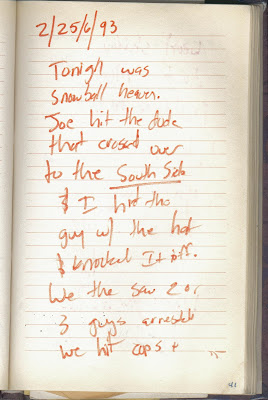 2/25/6/93
Tonigh was
Snowball heaven.
Joe hit the dude
that crossed over
to the South Side
& I hit the
guy w/ the hat
& knocked It off.
We the saw 2 or
3 guys arrested
We hit cops +